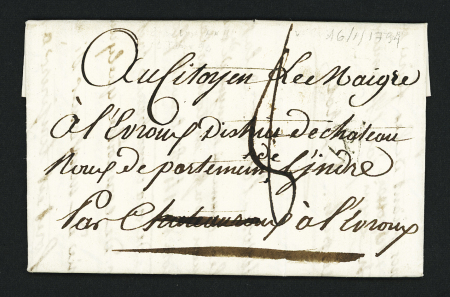 AG/1/1794
Au Citoyen Le Maigre
à l'Evroux District de chateau
Roux departement de L'jndre
Par Chateauroux à l'Evroux